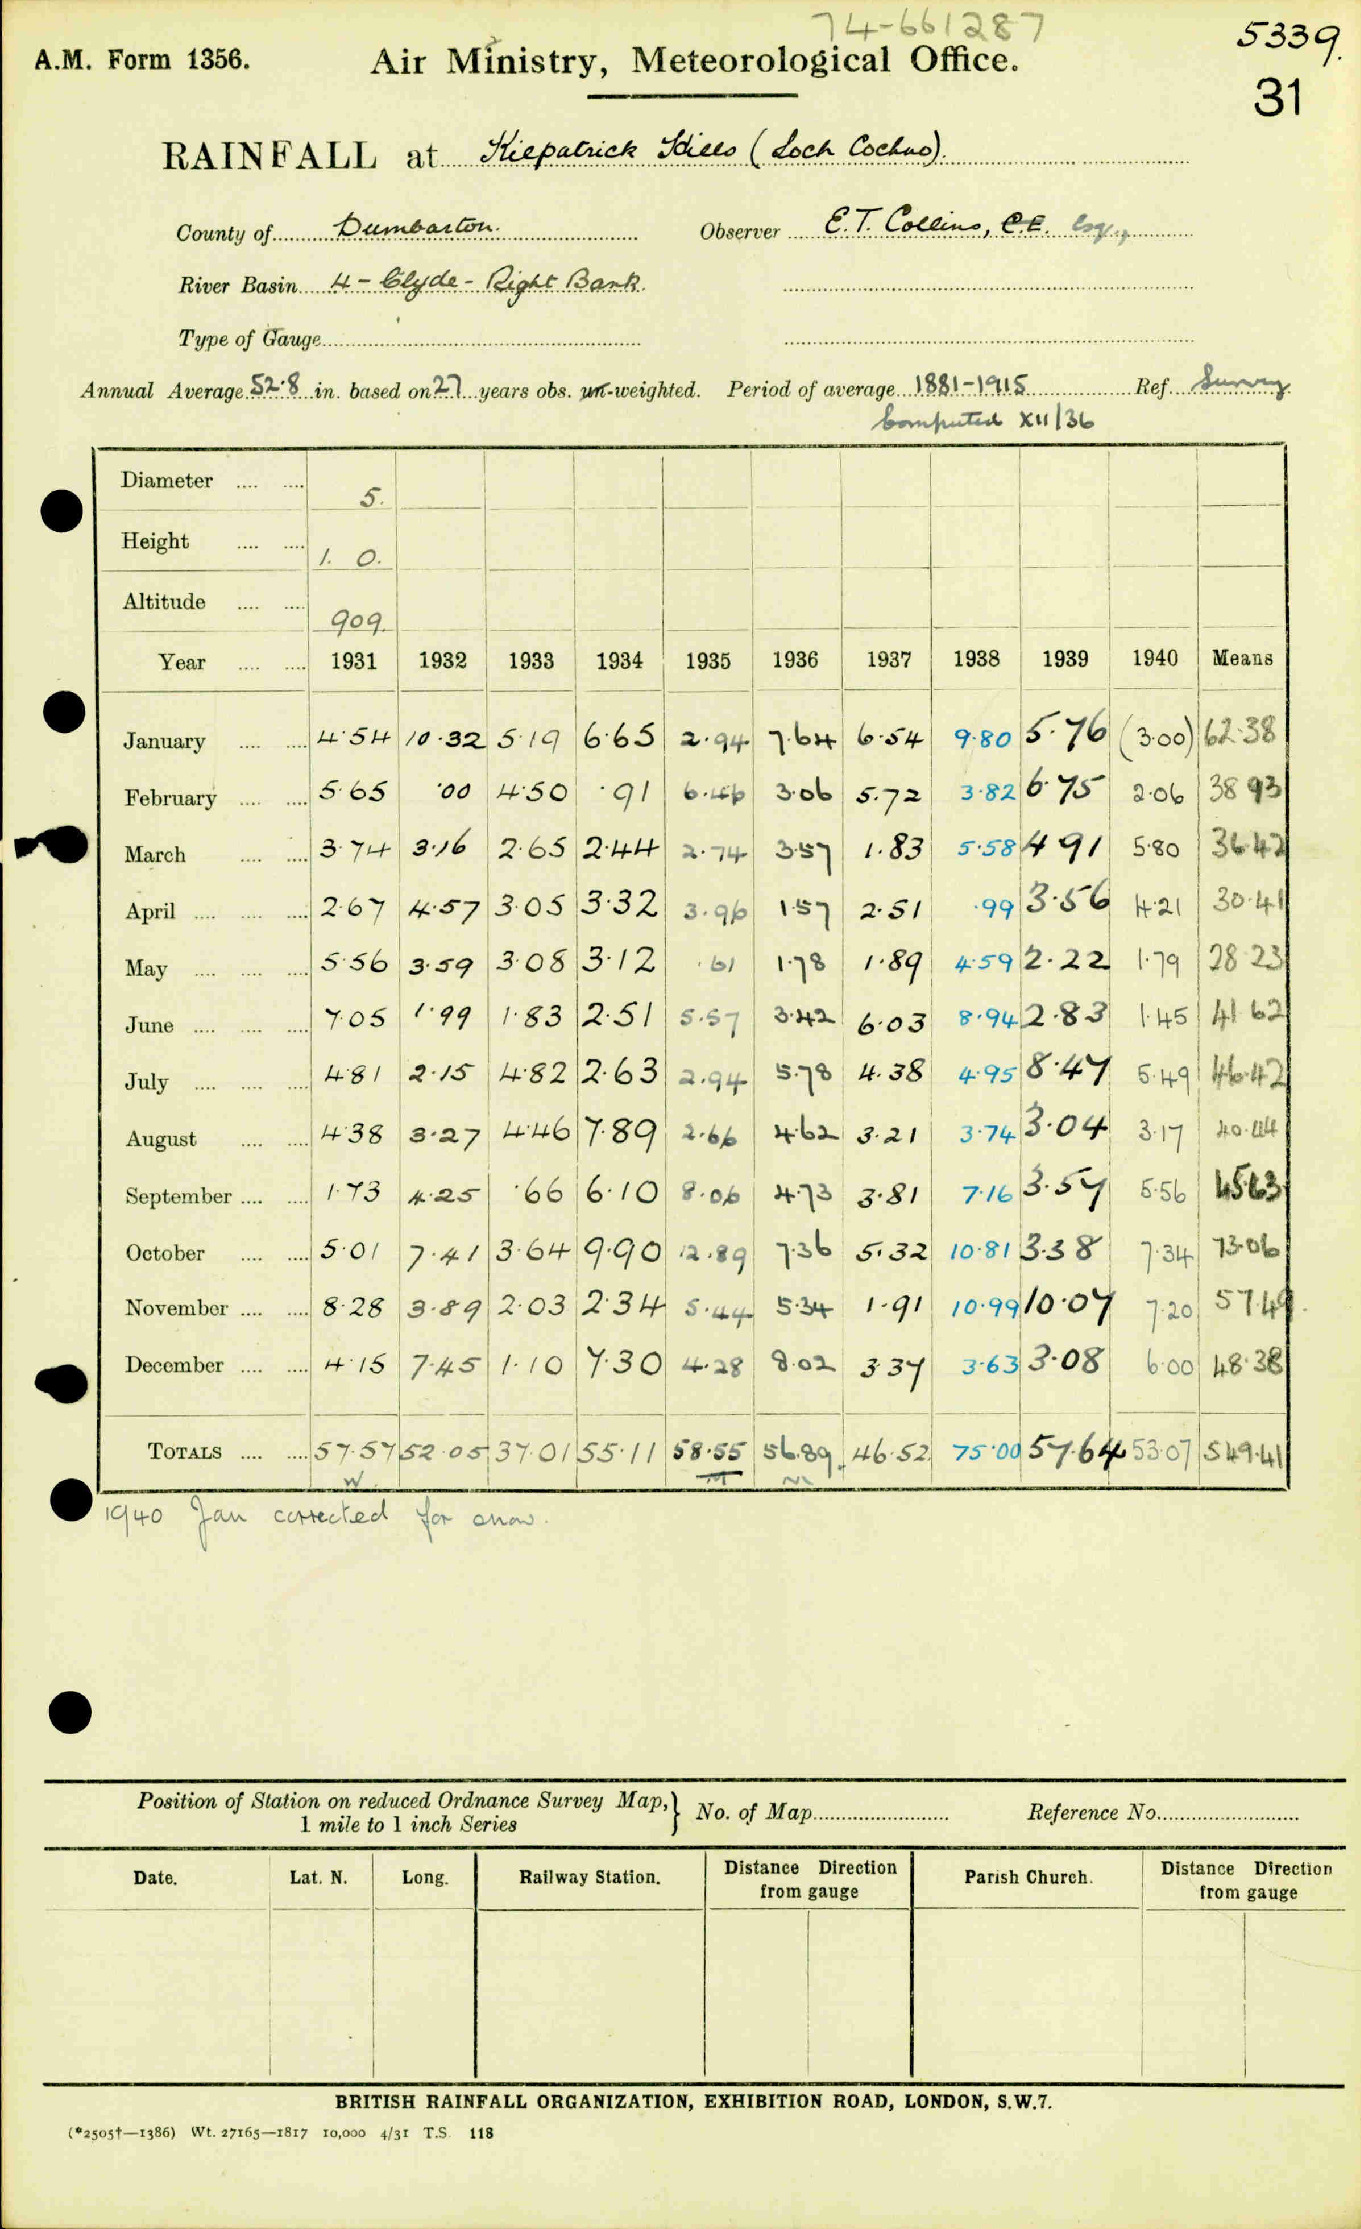 74-661287
5339.
A.M. Form 1356. Air Ministry, Meteorological Office.
31
RAINFALL at Kilpatrick Hills (Loch Cochno).
County of Dumbarton. Observer E.T. Collins, C.E. Esq.,
River Basin 4 - Clyde - Right Bank.
Type of Gauge
Annual Average 52·8 in. based on 27 years obs. un-weighted. Period of average 1881-1915 Ref. Survey
Computed XII/36
Diameter 5.
Height 1. 0.
Altitude 909.
Year 1931 1932 1933 1934 1935 1936 1937 1938 1939 1940 Means
January 4·54 10·32 5·19 6·65 2·94 7·64 6·54 9·80 5·76 (3·00) 62·38
February 5·65 ·00 4·50 ·91 6·46 3·06 5·72 3·82 6·75 2·06 38 93
March 3·74 3·16 2·65 2·44 2·74 3·57 1·83 5·58 4 91 5·80 36·42
April 2·67 4·57 3·05 3·32 3·96 1·57 2·51 ·99 3·56 4·21 30·41
May 5·56 3·59 3·08 3·12 ·61 1·78 1·89 4·59 2·22 1·79 28·23
June 7·05 1·99 1·83 2·51 5·57 3·42 6·03 8·94 2·83 1·45 41 62
July 4·81 2·15 4·82 2·63 2·94 5·78 4·38 4·95 8·47 5·49 46·42
August 4·38 3·27 4·46 7·89 2·66 4·62 3·21 3·74 3·04 3·17 40·44
September 1·73 4·25 ·66 6·10 8·06 4·73 3·81 7·16 3·57 5·56 45·63
October 5·01 7·41 3·64 9·90 12·89 7·36 5·32 10·81 3·38 7·34 73·06
November 8·28 3·89 2·03 2·34 5·44 5·34 1·91 10·99 10·07 7·20 57·49
December 4·15 7·45 1·10 7·30 4·28 8·02 3·37 3·63 3·08 6·00 48·38
TOTALS 57·57 52·05 37·01 55·11 58·55 56·89 46·52 75·00 57·64 53·07 549·41
W
1940 Jan corrected for snow.
Position of Station on reduced Ordnance Survey Map,} No. of Map Reference No.
1 mile to 1 inch Series
Date. Lat. N. Long. Railway Station. Distance Direction from gauge Parish Church. Distance Direction from gauge
BRITISH RAINFALL ORGANIZATION, EXHIBITION ROAD, LONDON, S.W.7.
(*2505†—1386) Wt. 27165—1817 10,000 4/31 T.S. 118